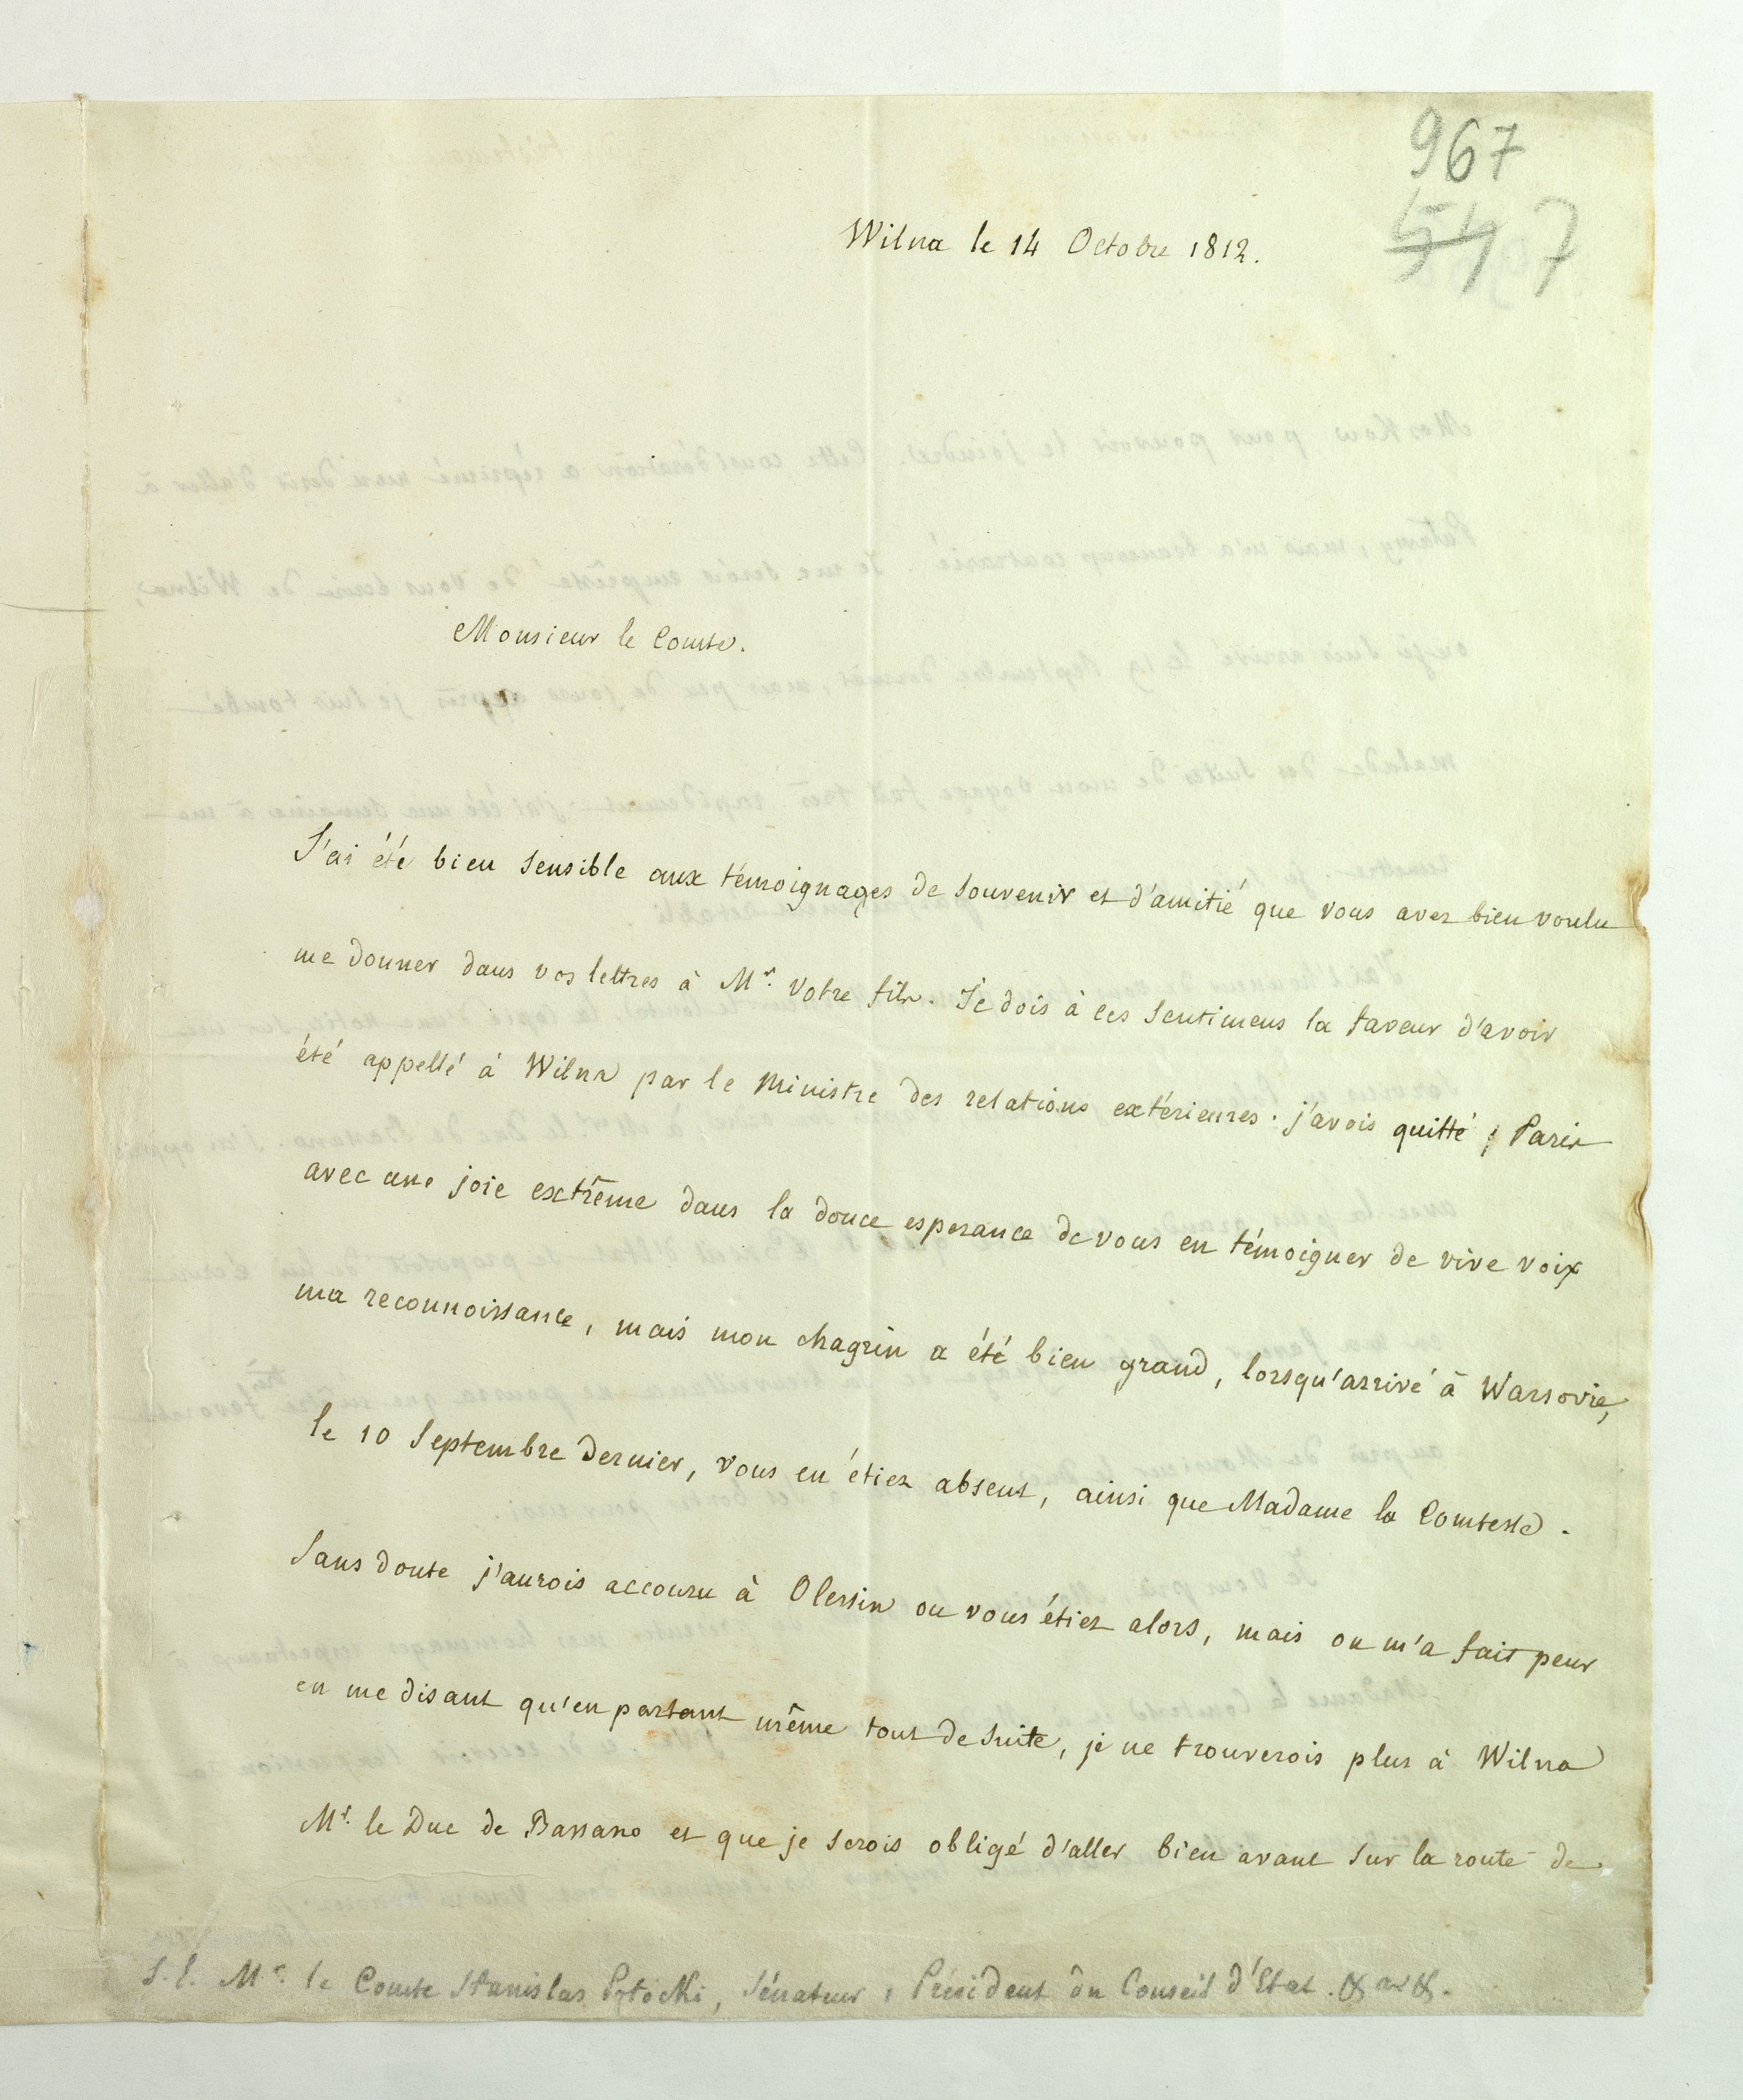 967
547
Wilna le 14 Octobre 1812.
Monsieur le Comte.
J'ai été bien sensible aux témoignages de souvenir et d'amitié que vous avez bien voulu
me donner dans vos lettres à Mr. votre fils. Je dois à ces sentimens la faveur d'avoir
été appellé à Wilna par le Ministre des relations extérieures. j'avois quitté Paris
avec une joie extrême dans la douce esperance de vous en témoigner de vive voix
ma reconnoissance, mais mon chagrin a été bien grand, lorsqu'arrivé à Warsovie,
le 10 Septembre dernier, vous en étiez absent, ainsi que Madame la Comtesse.
Sans doute j'aurois accouru à Olessin ou vous étiez alors, mais on m'a fait peur
en me disant qu'en partant même tout de suite, je ne trouverois plus à Wilna
Mr. le Duc de Bassano et que je serois obligé d'aller bien avant sur la route de
S. E. Mr. le Comte Stanislas Potocki, Sénateur, Président du Conseil d'Etat. & &.